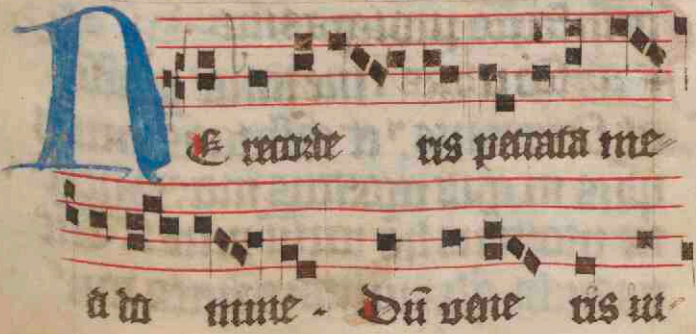 NE recorde ris peccata me
a do mine. Dū vene ris iu